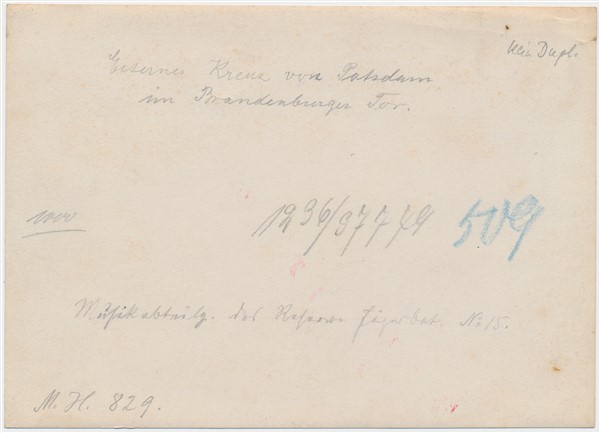 Kein Dupl.
Eisernes Kreuz von Potsdam
im Brandenburger Tor.
1236/37749 509
Musikabteilg. des Reserve Jägerbat. No 15.
M. H. 829.